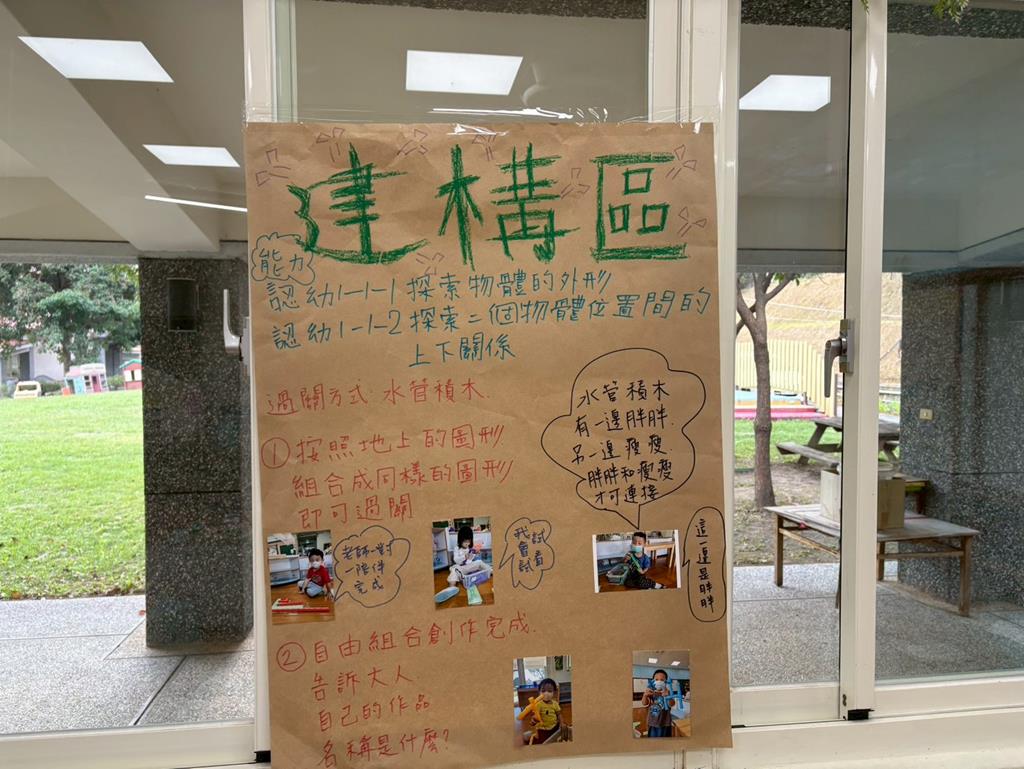 建構區
能力
認幼1-1-1 探索物體的外形
認幼1-1-2 探索二個物體位置間的
上下關係
過關方式:水管積木.
①按照地上的圖形
組合成同樣的圖形
即可過關
水管積木
有一邊胖胖.
另一邊瘦瘦.
胖胖和瘦瘦
才可連接
老師一對
一陪伴
完成
我試
會看
試
這一邊是胖胖
②自由組合創作完成.
告訴大人
自己的作品
名稱是什麼?